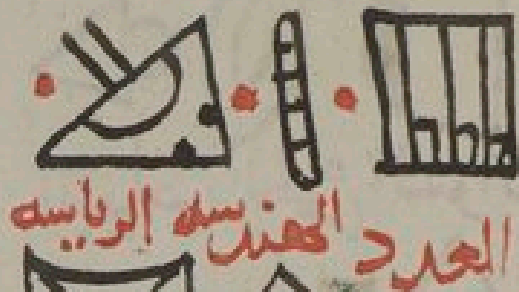 العدد الهندسه الرياسه